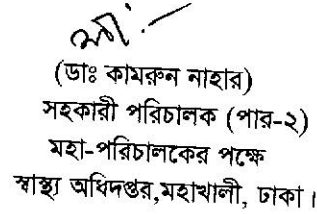 (ডাঃ কামরুন নাহার)
সহকারী পরিচালক (পার-২)
মহা-পরিচালকের পক্ষে
স্বাস্থ্য অধিদপ্তর,মহাখালী, ঢাকা।